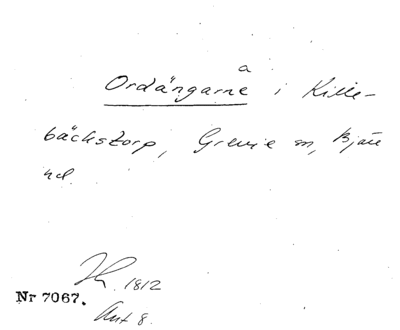 Ordängarne a i Kille-
bäckstorp, Grevie sn, Bjäre
hd.
1812
Nr 7067.
Ant 8.